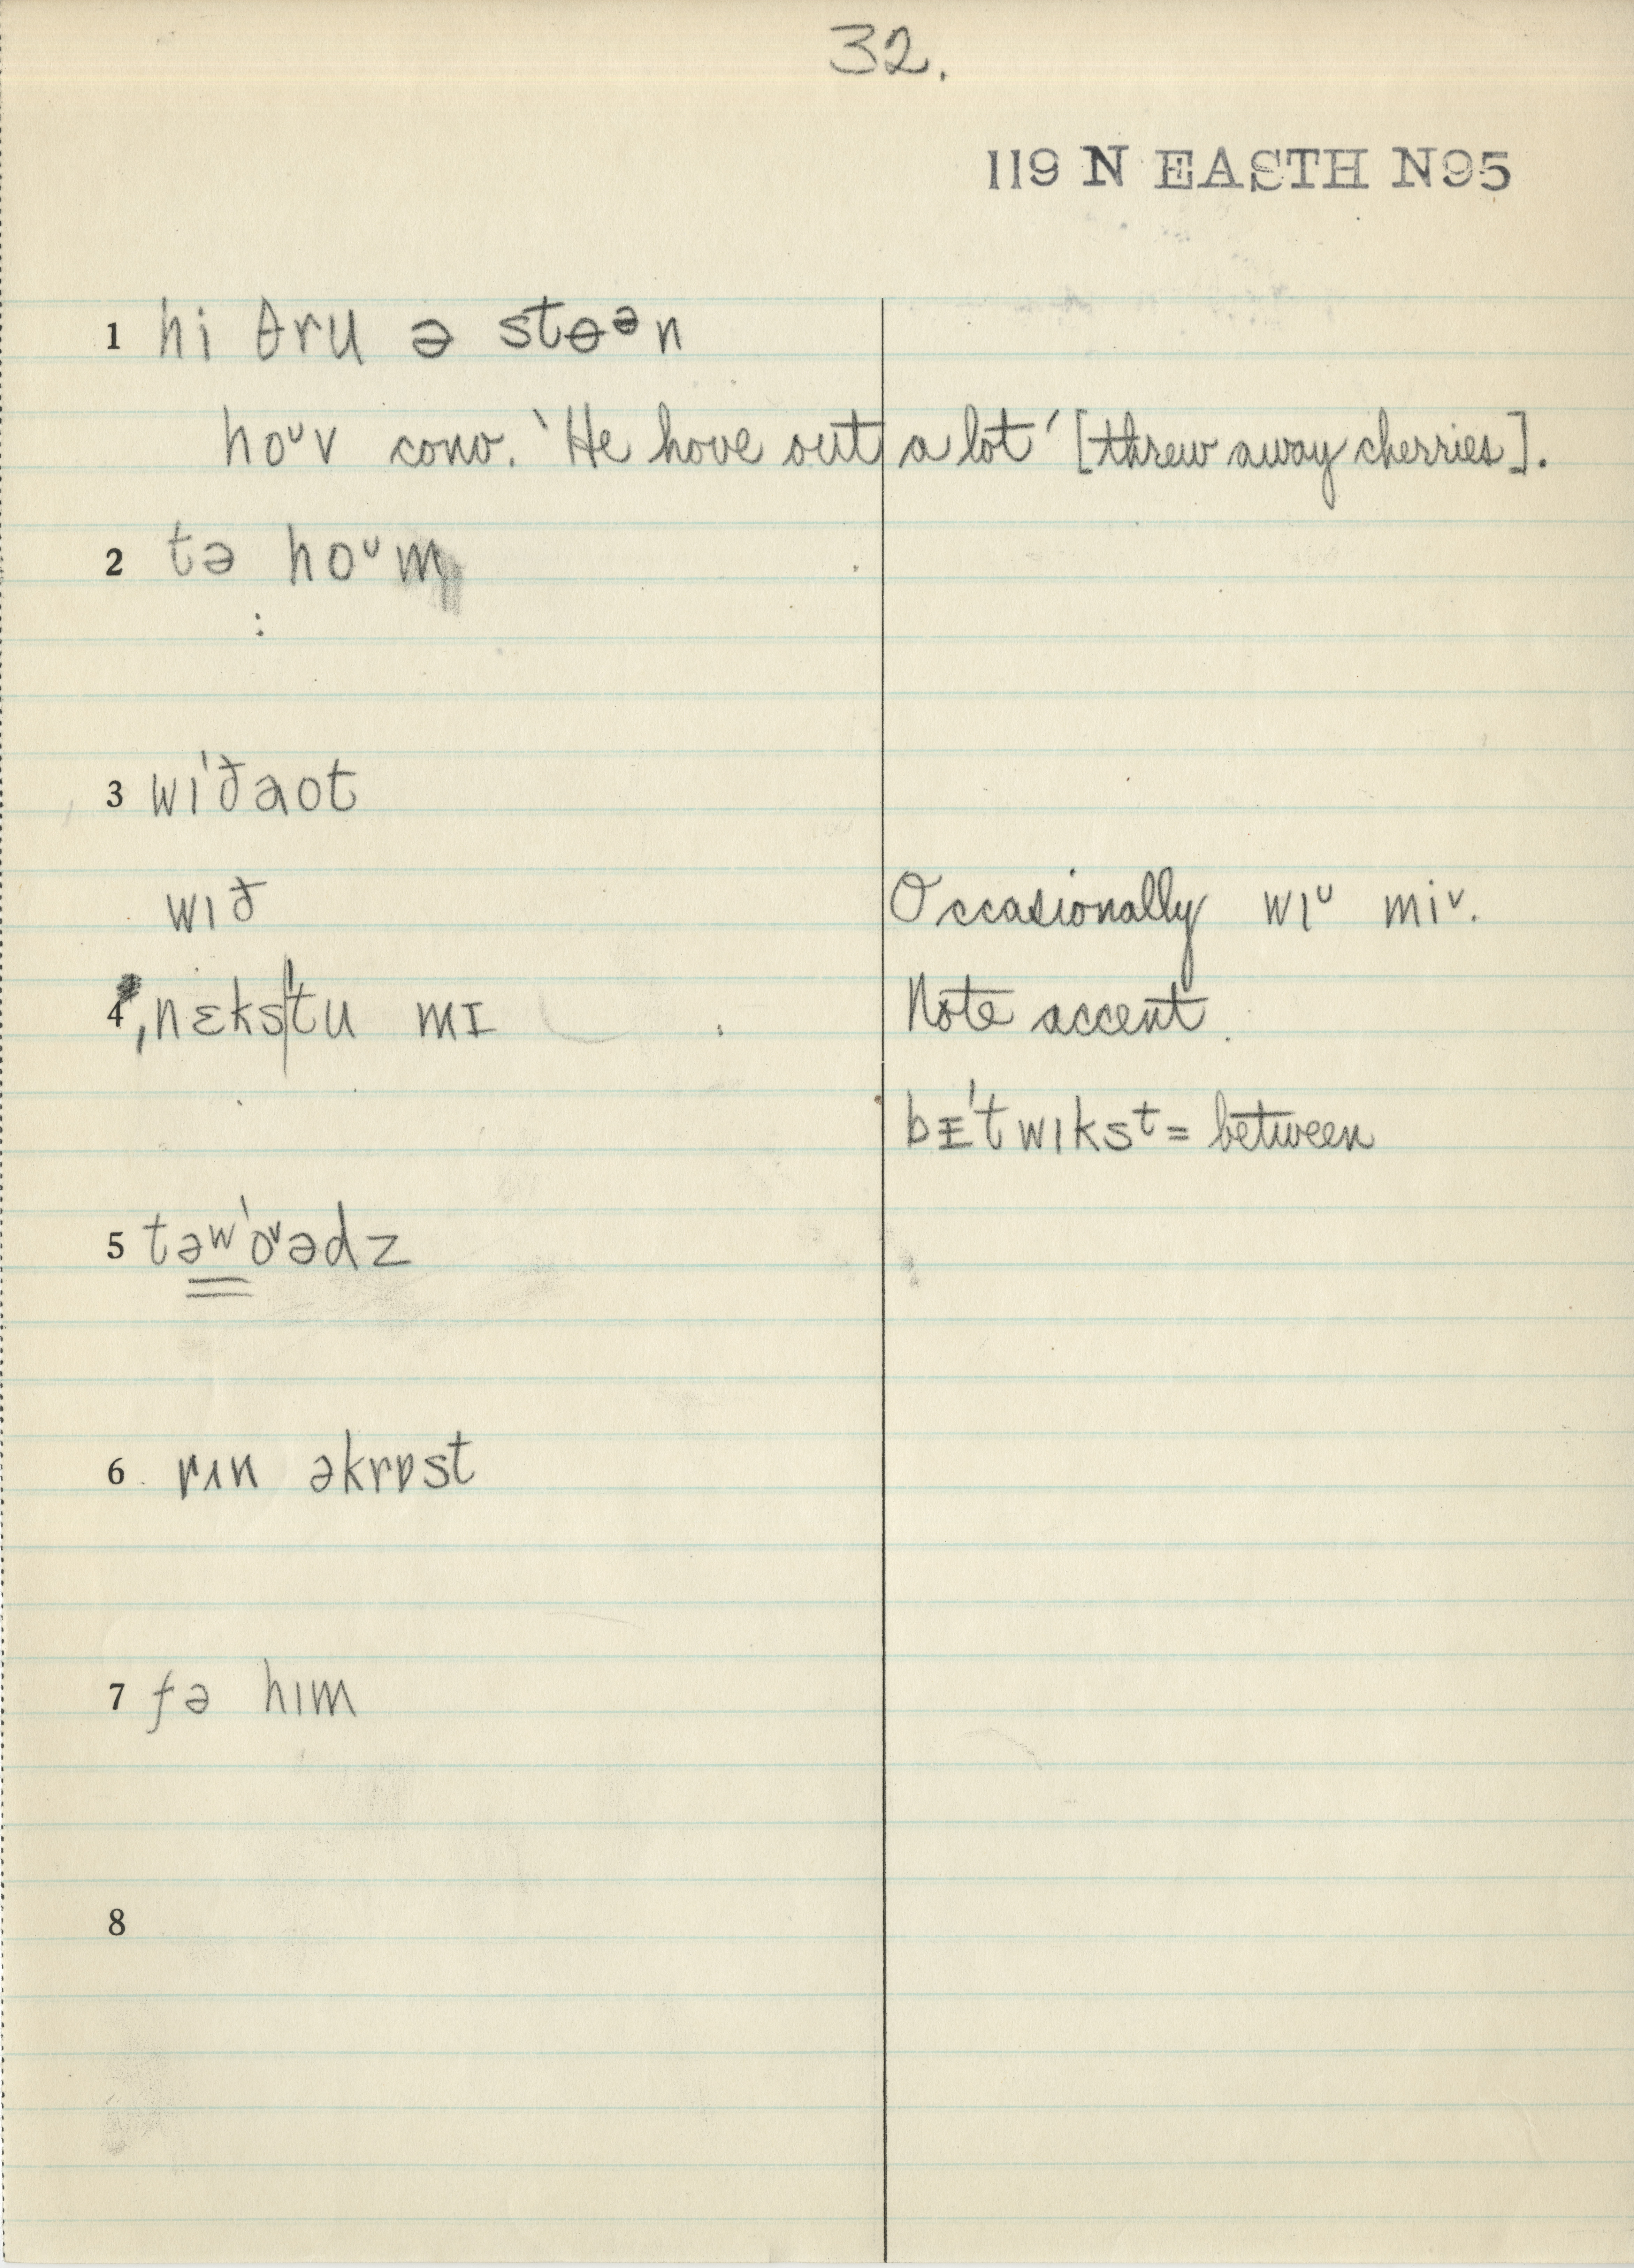 32.
119 N EASTH N95
1 hi θru ə stɵᵊn
hoᵘv conv. 'He hove out a lot' [threw away cherries].
2 tə hoᵘm
:
3 wɪ'ðaʊt
wɪð Occasionally wɪᵘ miᵛ.
4 ˌnɛks'tu mɪ Note accent.
bɪ'twɪksᵗ = between
5 təʷ'oᵛədz
6 rʌn əkrɒst
7 fə hɪm
8